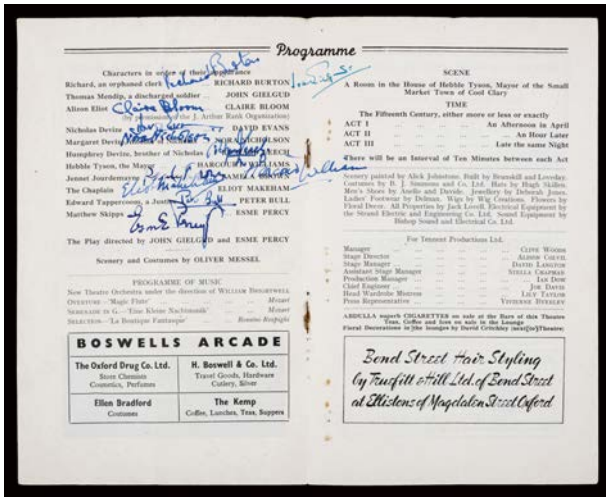 Programme
Characters in order of their appearance
Richard, an orphaned clerk RICHARD BURTON
Richard Burton
Thomas Mendip, a discharged soldier .. JOHN GIELGUD
Alison Eliot CLAIRE BLOOM
Claire Bloom
(by permission of the J. Arthur Rank Organization)
Nicholas Devize DAVID EVANS
Margaret Devize NORA NICHOLSON
Nora Nicholson
Humphrey Devize, brother of Nicholas
Hebble Tyson, the Mayor HARCOURT WILLIAMS
Jennet Jourdemayne PAMELA BROWN
The Chaplain ELIOT MAKEHAM
Eliot Makeham
Edward Tappercoom, a Justice PETER BULL
Peter Bull
Matthew Skipps ESME PERCY
Esme Percy
The Play directed by JOHN GIELGUD and ESME PERCY
Scenery and Costumes by OLIVER MESSEL
PROGRAMME OF MUSIC
New Theatre Orchestra under the direction of WILLIAM
OVERTURE—'Magic Flute' ... Mozart
SERENADE IN G—'Eine Kleine Nachtmusik' Mozart
SELECTION—'La Boutique Fantasque' Rossini-Respighi
BOSWELLS ARCADE
The Oxford Drug Co. Ltd.
Store Chemists
Cosmetics, Perfumes
H. Boswell & Co. Ltd.
Travel Goods, Hardware
Cutlery, Silver
Ellen Bradford
Costumes
The Kemp
Coffee, Lunches, Teas, Suppers
SCENE
A Room in the House of Hebble Tyson, Mayor of the Small
Market Town of Cool Clary
TIME
The Fifteenth Century, either more or less or exactly
ACT I ... An Afternoon in April
ACT II ... An Hour Later
ACT III ... Late the same Night
There will be an Interval of Ten Minutes between each Act
Scenery painted by Alick Johnstone. Built by Brunskill and Loveday.
Costumes by B. J. Simmons and Co. Ltd. Hats by Hugh Skillen.
Men's Shoes by Anello and Davide. Jewellery by Deborah Jones.
Ladies' Footwear by Delman. Wigs by Wig Creations. Flowers by
Floral Decor. All Properties by Jack Lovell. Electrical Equipment by
the Strand Electric and Engineering Co. Ltd. Sound Equipment by
Bishop Sound and Electrical Co. Ltd.
For Tennent Productions Ltd.
Manager ... CLIVE WOODS
Stage Director ... ALISON COLVIL
Stage Manager ... DAVID LANGTON
Assistant Stage Manager ... STELLA CHAPMAN
Production Manager ... IAN DOW
Chief Engineer ... JOE DAVIS
Head Wardrobe Mistress ... LILY TAYLOR
Press Representative ... VIVIENNE BYERLEY
ABDULLA superb CIGARETTES on sale at the Bars of this Theatre
Teas, Coffee and Ices on sale in the Lounge
Floral Decorations in the lounges by David Critchley (near to) Theatre:
Bond Street Hair Styling
by Truefitt & Hill Ltd. of Bond Street
at Ellistons of Magdalen Street Oxford